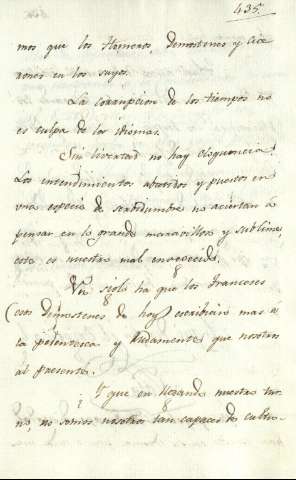 435
mos que los Homeros, Demostenes y Cice
rones en los suyos.
La corrupcion de los tiempos no
es culpa de los idiomas.
Sin libertad no hay eloquencia.
Los entendimientos aburidos y puestos en
una especie de servidumbre no aciertan a
pensar en lo grande maravilloso y sublime,
este es nuestro mal envegecido.
Un siglo ha que los Franceses
(esos Demostenes de hoy) escribian mas a
la pedantesca y rudamente que nosotros
al presente.
¿Y que en llegando nuestro tur
no, no somos nosotros tan capaces de cultivo